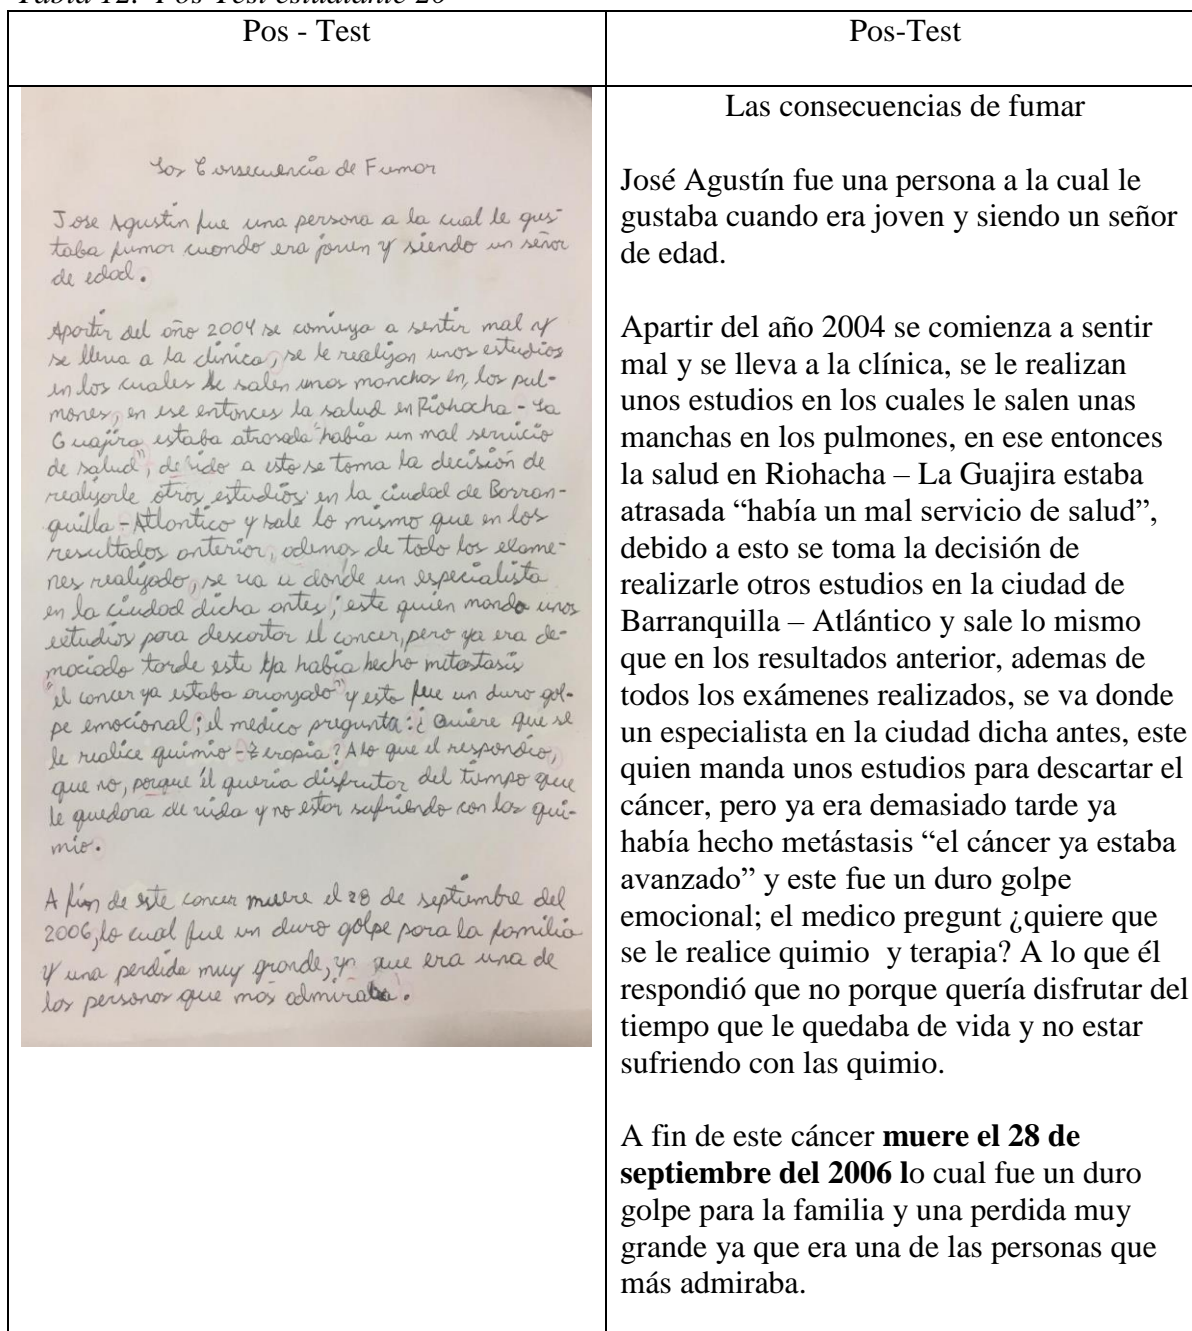 Tabla 12. Pos-Test estudiante 20
Pos - Test
Las Consecuencia de Fumar
Jose Agustin fue una persona a la cual le gus-
taba fumar cuando era joven y siendo un señor
de edad.
Apartir del año 2004 se comienza a sentir mal y
se lleva a la clínica, se le realizan unos estudios
en los cuales le salen unas manchas en, los pul-
mones, en ese entonces la salud en Riohacha - La
Guajira estaba atrasada "había un mal servicio
de salud", debido a esto se toma la decisión de
realizarle otros estudios en la ciudad de Barran-
quilla - Atlantico y sale lo mismo que en los
resultados anterior, ademas de todo los exame-
nes realizado, se va a donde un especialista
en la ciudad dicha antes; este quien manda unos
estudios para descartar el cancer, pero ya era de-
maciado tarde este ya había hecho metastasis
"el cancer ya estaba avanzado" y esto fue un duro gol-
pe emocional; el medico pregunta: ¿Quiere que se
le realice quimio - terapia? A lo que el respondio,
que no, porque él queria disfrutar del tiempo que
le quedara de vida y no estar sufriendo con las qui-
mio.
A fin de este cancer muere el 28 de septiembre del
2006, lo cual fue un duro golpe para la familia
y una perdida muy grande, ya que era una de
las personas que más admiraba.
Pos-Test
Las consecuencias de fumar
José Agustín fue una persona a la cual le
gustaba cuando era joven y siendo un señor
de edad.
Apartir del año 2004 se comienza a sentir
mal y se lleva a la clínica, se le realizan
unos estudios en los cuales le salen unas
manchas en los pulmones, en ese entonces
la salud en Riohacha – La Guajira estaba
atrasada “había un mal servicio de salud”,
debido a esto se toma la decisión de
realizarle otros estudios en la ciudad de
Barranquilla – Atlántico y sale lo mismo
que en los resultados anterior, ademas de
todos los exámenes realizados, se va donde
un especialista en la ciudad dicha antes, este
quien manda unos estudios para descartar el
cáncer, pero ya era demasiado tarde ya
había hecho metástasis “el cáncer ya estaba
avanzado” y este fue un duro golpe
emocional; el medico pregunt ¿quiere que
se le realice quimio  y terapia? A lo que él
respondió que no porque quería disfrutar del
tiempo que le quedaba de vida y no estar
sufriendo con las quimio.
A fin de este cáncer muere el 28 de
septiembre del 2006 lo cual fue un duro
golpe para la familia y una perdida muy
grande ya que era una de las personas que
más admiraba.